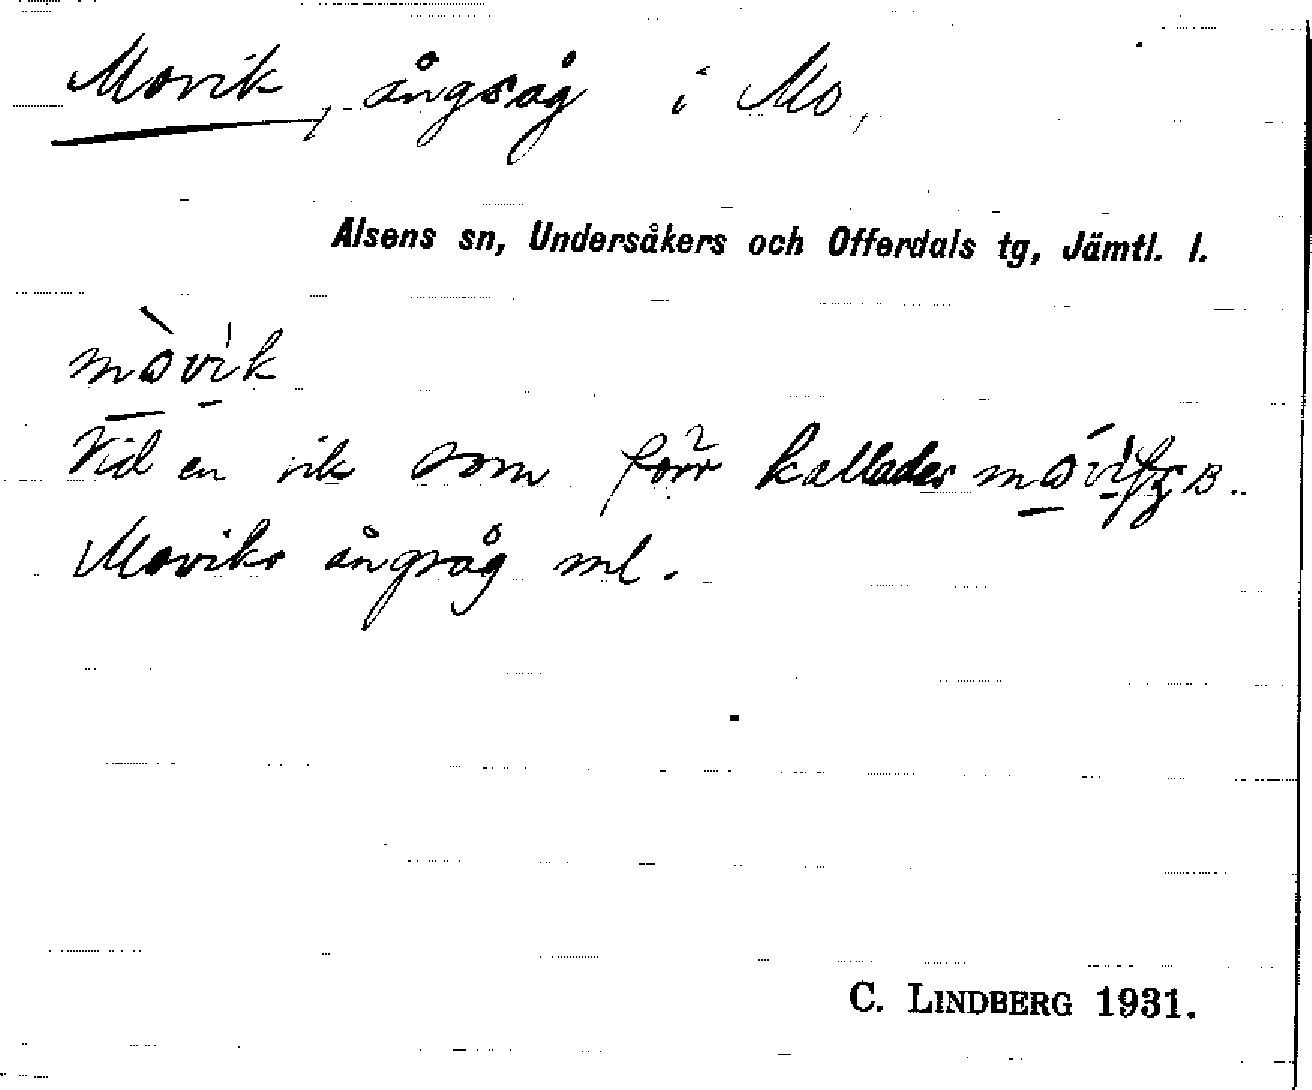 Movik, ångsåg i Mo,
Alsens sn, Undersåkers och Offerdals tg, Jämtl. l.
mòvik
Vid en vik som förr kallades
Moviks ångsåg ml.
C. LINDBERG 1931.